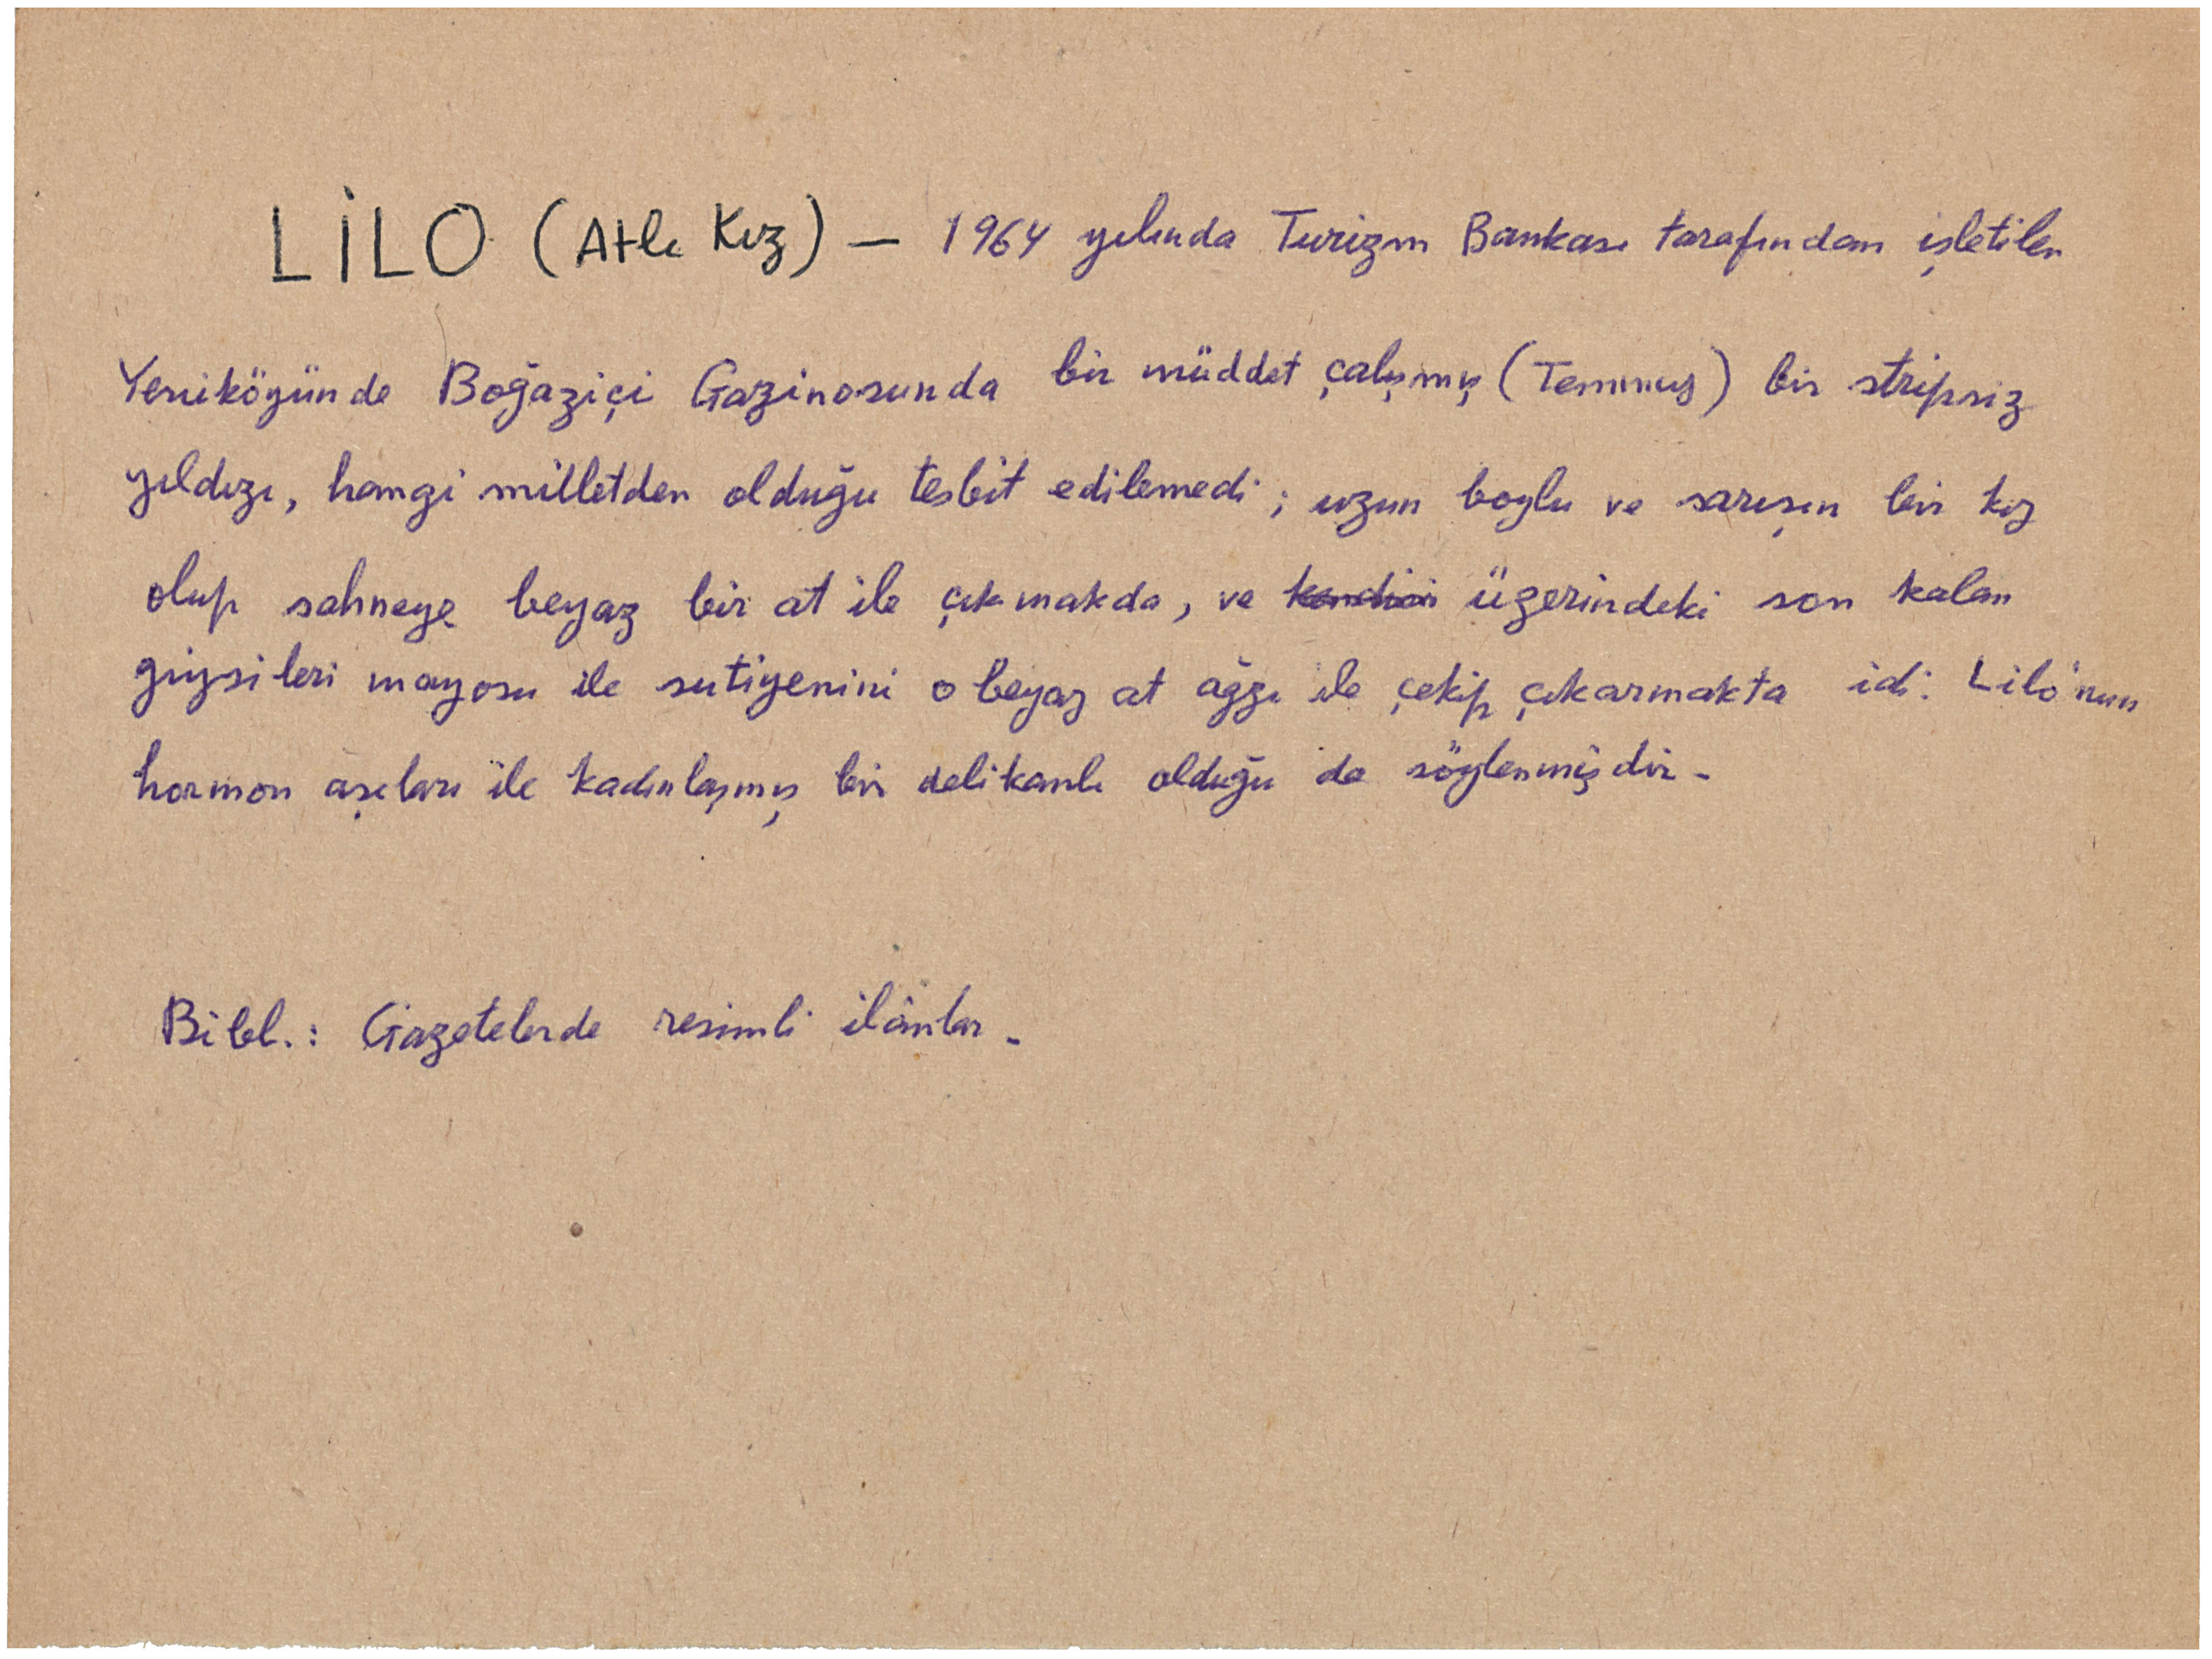 LİLO (Atlı Kız) — 1964 yılında Turizm Bankası tarafından işletilen
Yeniköyünde Boğaziçi Gazinosunda bir müddet çalışmış (Temmuz) bir stripsiz
yıldızı, hangi milletden olduğu tesbit edilemedi; uzun boylu ve sarışın bir kız
olup sahneye beyaz bir at ile çıkmakda, ve kendisi üzerindeki son kalan
giysileri mayosu ile sutiyenini o beyaz at ağzı ile çekip çıkarmakta idi. Lilo'nun
hormon aşıları ile kadınlaşmış bir delikanlı olduğu da söylenmişdir.
Bibl.: Gazetelerde resimli ilânlar.